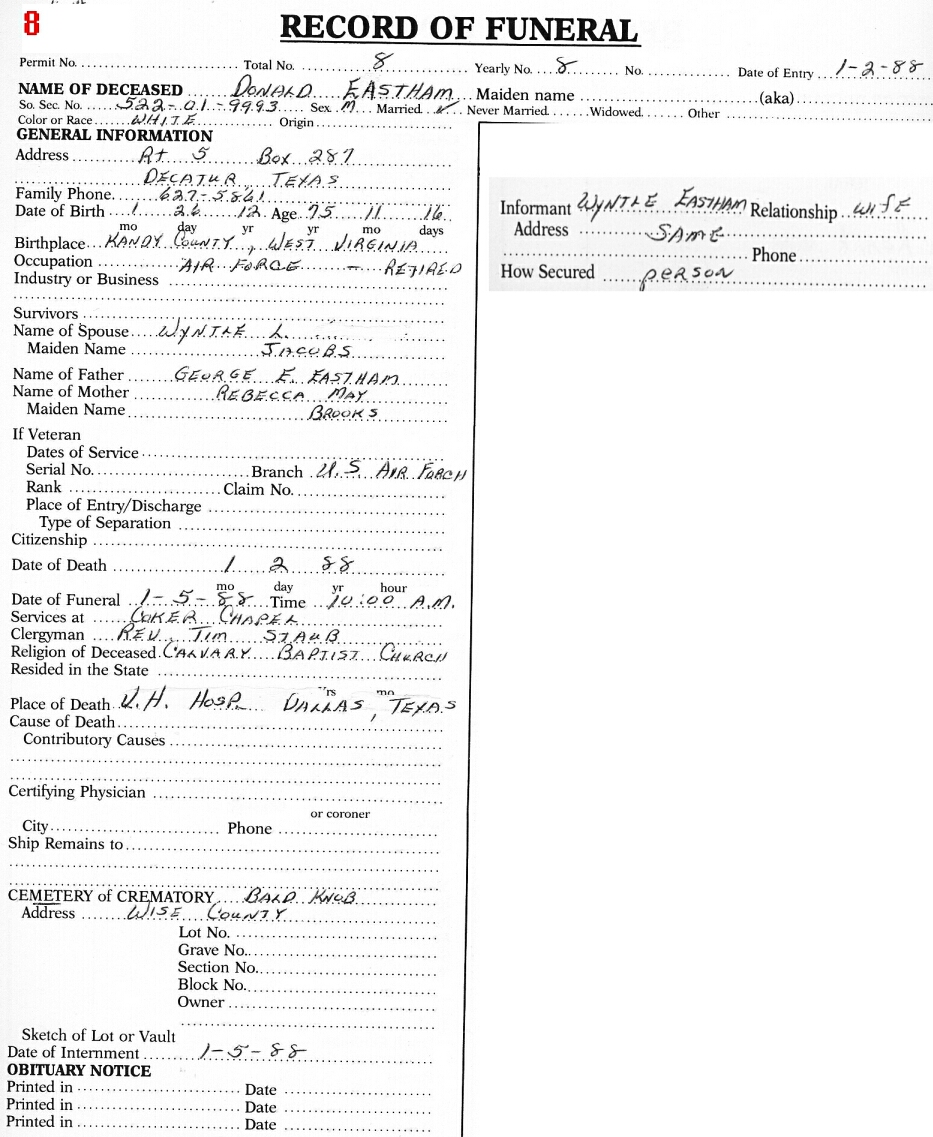 8
RECORD OF FUNERAL
Permit No. Total No. 8 Yearly No. 8 No. Date of Entry 1-2-88
NAME OF DECEASED DONALD EASTHAM Maiden name (aka)
So. Sec. No. 522-01-9993 Sex M Married ✓ Never Married Widowed Other
Color or Race WHITE Origin
GENERAL INFORMATION
Address Rt 5 Box 287
DECATUR TEXAS
Family Phone 627-5861
Date of Birth 1 26 12 Age 75 11 16
mo day yr yr mo days
Birthplace KANDY COUNTY, WEST VIRGINIA
Occupation AIR FORCE - RETIRED
Industry or Business
Survivors
Name of Spouse WYNTLE L.
Maiden Name JACOBS
Name of Father GEORGE E. EASTHAM
Name of Mother REBECCA MAY
Maiden Name BROOKS
If Veteran
Dates of Service
Serial No. Branch U.S AIR FORCH
Rank Claim No.
Place of Entry/Discharge
Type of Separation
Citizenship
Date of Death 1 2 88
mo day yr hour
Date of Funeral 1-5-88 Time 10:00 A.M.
Services at COKER CHAPEL
Clergyman REV. TIM STAUB
Religion of Deceased CALVARY BAPTIST CHURCH
Resided in the State
yrs mo
Place of Death V.H. HOSP. DALLAS, TEXAS
Cause of Death
Contributory Causes
Certifying Physician
or coroner
City Phone
Ship Remains to
CEMETERY of CREMATORY BALD KNOB
Address WISE COUNTY
Lot No.
Grave No.
Section No.
Block No.
Owner
Sketch of Lot or Vault
Date of Internment 1-5-88
OBITUARY NOTICE
Printed in Date
Printed in Date
Printed in Date
Informant WYNTLE EASTHAM Relationship WIFE
Address SAME
Phone
How Secured person